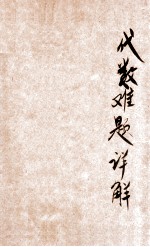 代数难题详解